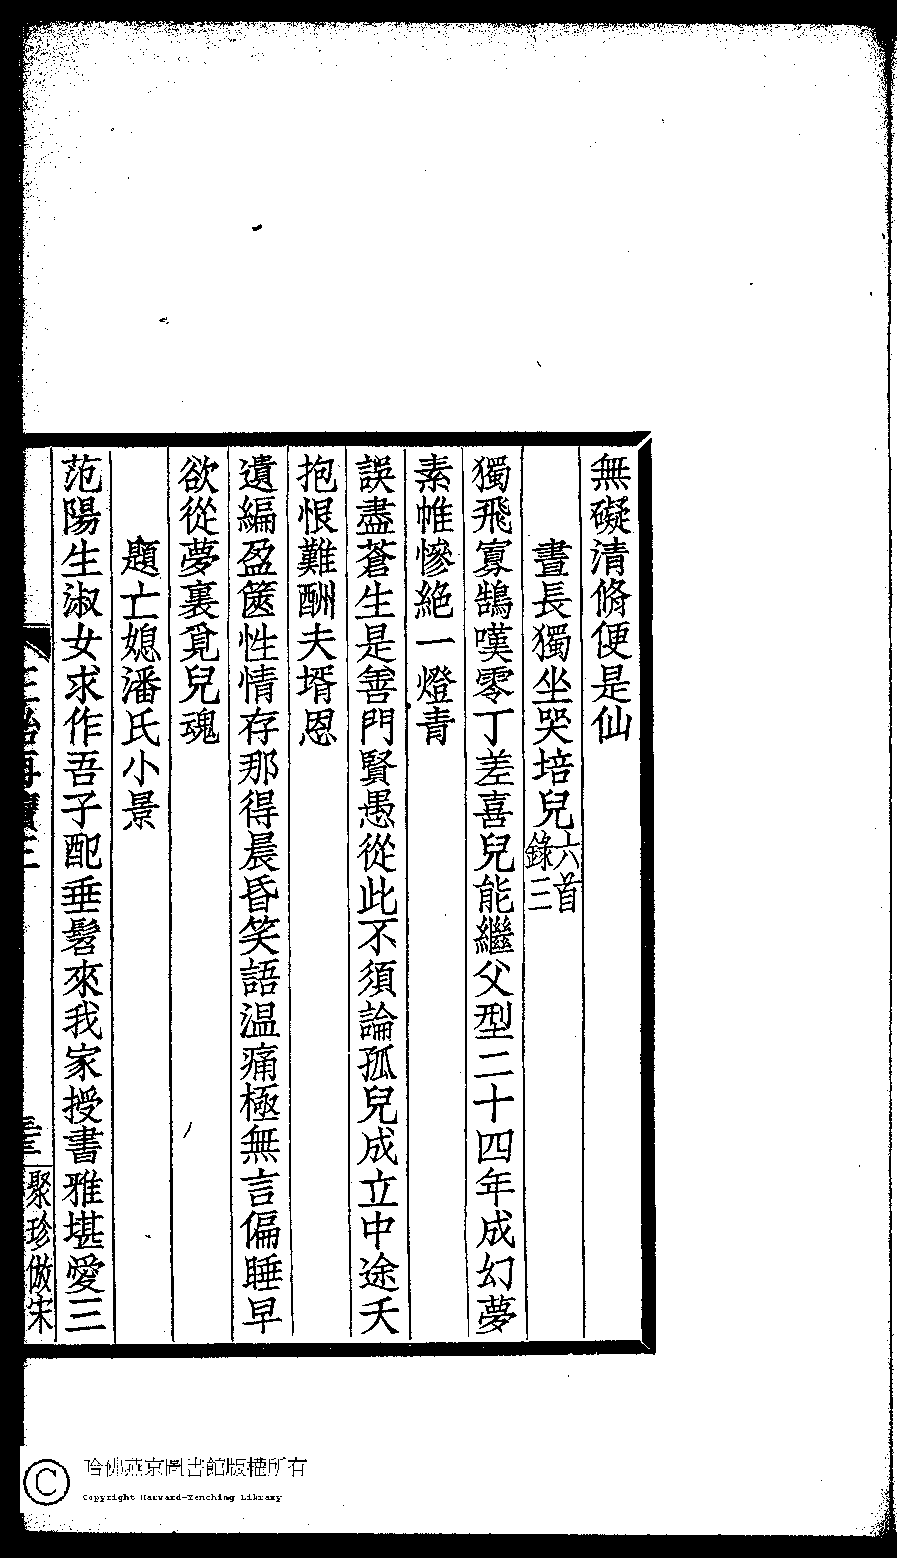 無礙清脩便是仙
晝長獨坐哭培兒六首錄三
獨飛寡鵠嘆零丁差喜兒能繼父型二十四年成幻夢
素帷慘絕一燈青
誤盡蒼生是善門賢愚從此不須論孤兒成立中途夭
抱恨難酬夫壻恩
遺編盈篋性情存那得晨昏笑語温痛極無言偏睡早
欲從夢裏覓兒魂
題亡媳潘氏小景
范陽生淑女求作吾子配垂髫來我家授書雅堪愛三
聚珍倣宋
哈佛燕京圖書館版權所有
Copyright Harvard-Yenching Library